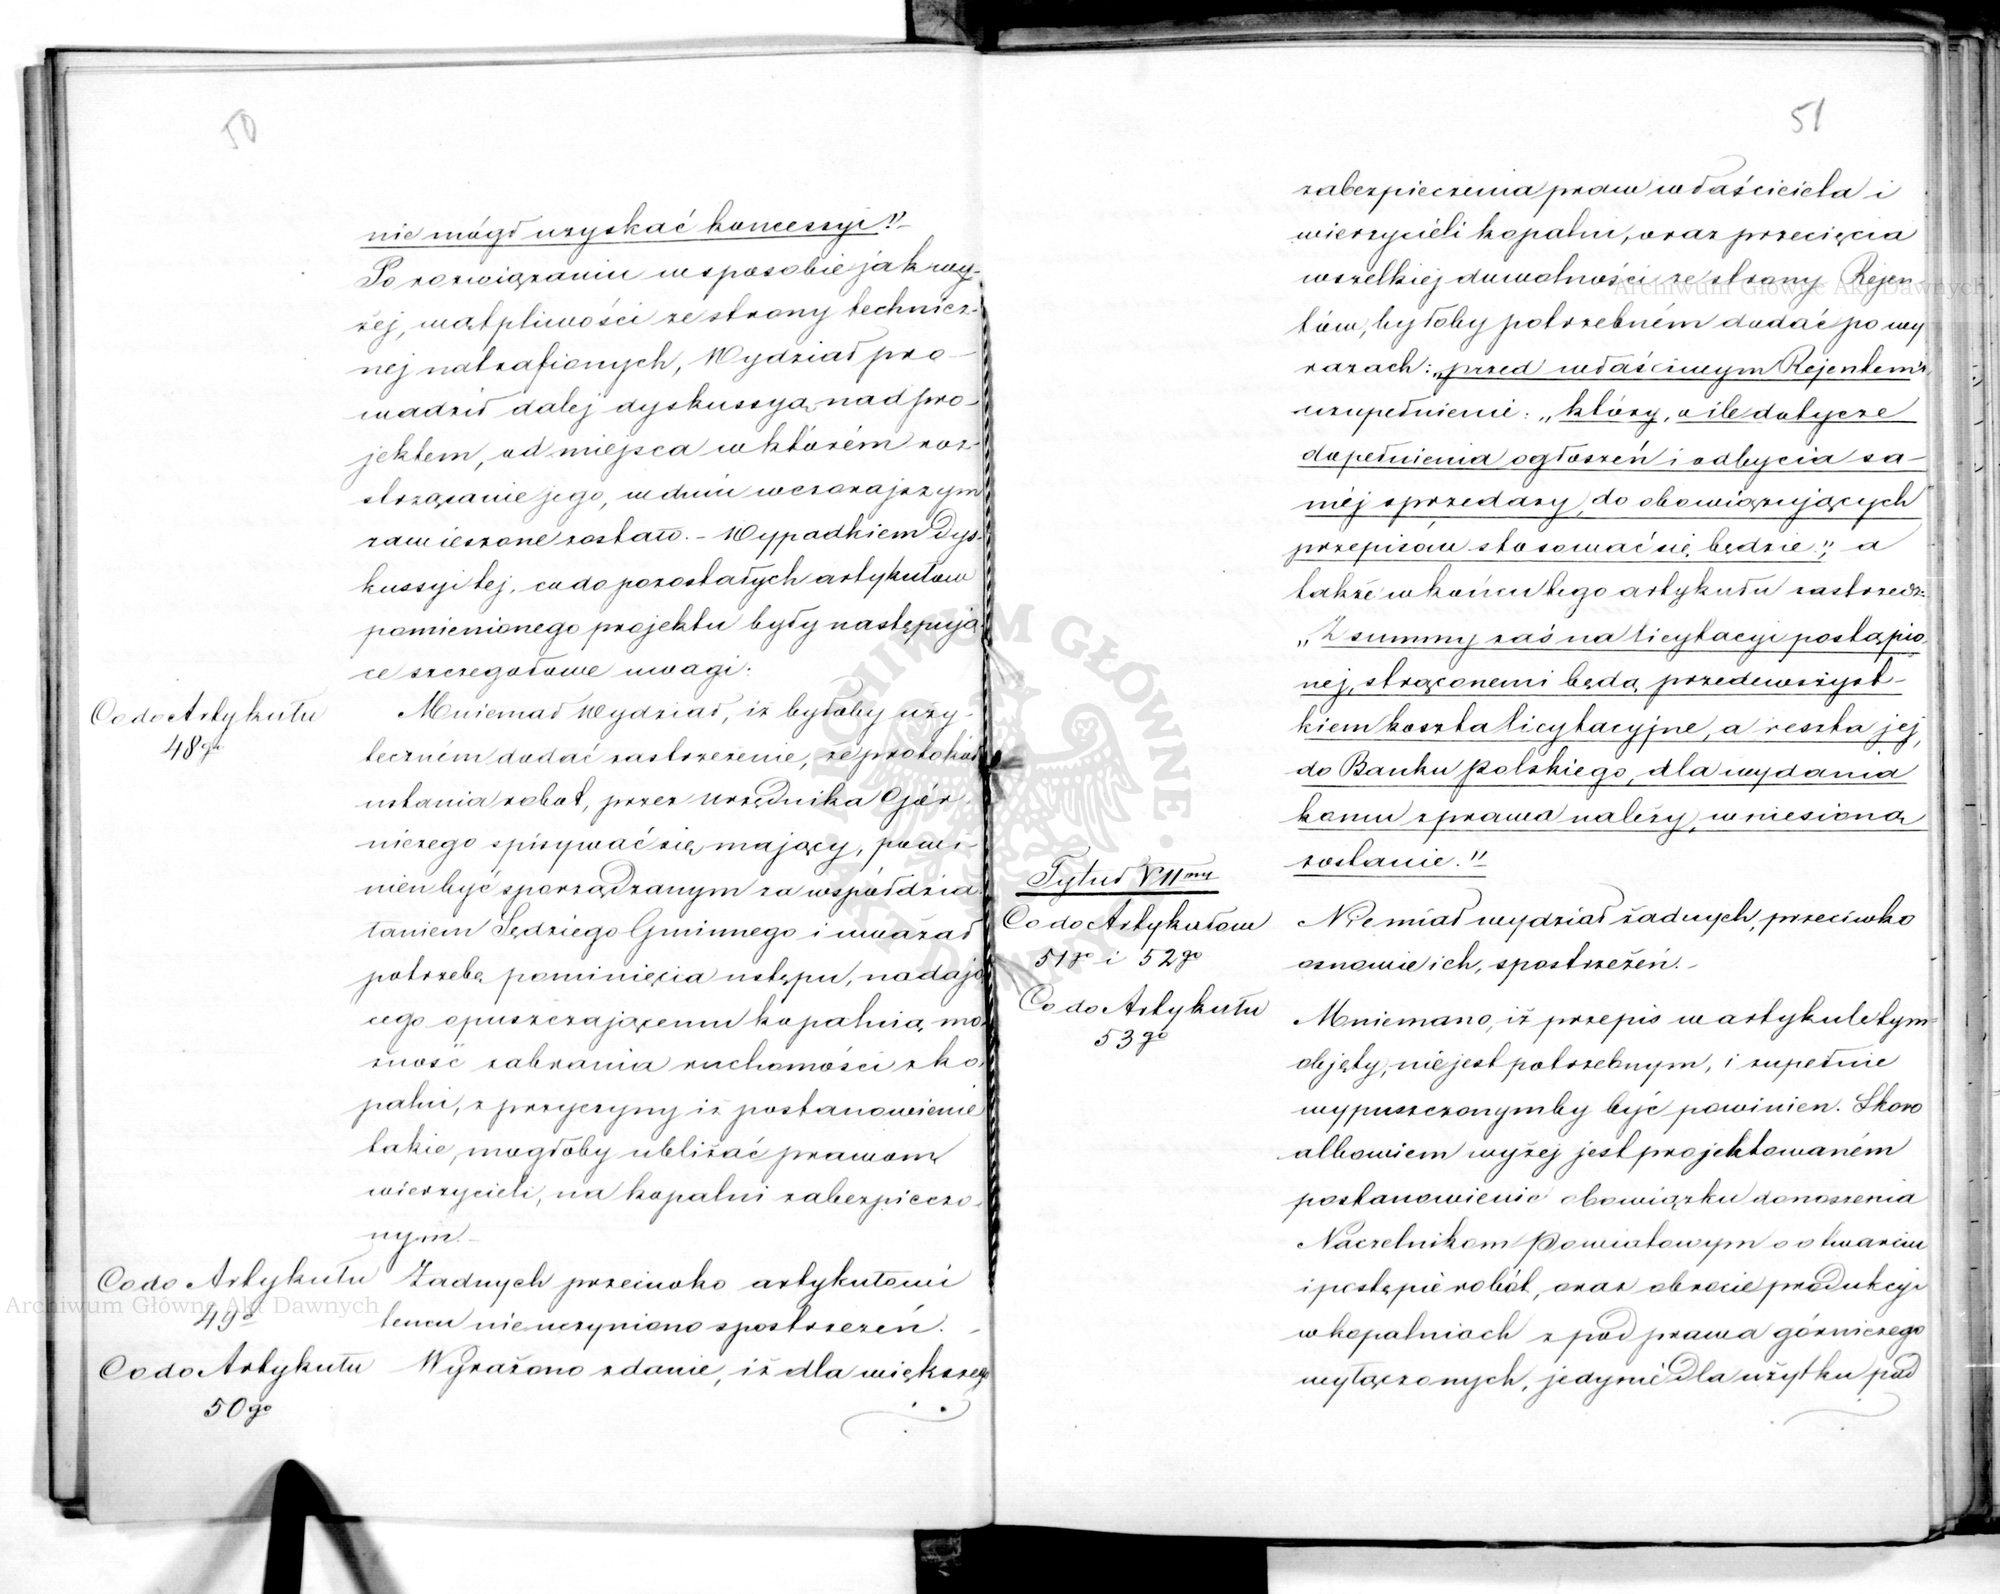 50
nie mógł uzyskać koncessyi."
Po rozwiązaniu w sposobie jak wy-
żej, wątpliwości ze strony technicz-
nej natrafionych, Wydział pro-
wadził dalej dyskussyą nad pro-
jektem, od miejsca w którém roz-
strząsanie jego, w dniu wczorajszym
zawieszone zostało. - Wypadkiem Dys-
kussyi tej, co do pozostałych artykułów
pomienionego projektu były następują-
ce szczegółowe uwagi:
Co do Artykułu
48go
Mniemał Wydział, iż byłoby uży-
teczném dodać zastrzeżenie, że protokół
ustania robót, przez Urzędnika Gór-
niczego spisywać się mający, powi-
nien być sporządzanym za współdzia-
łaniem Sędziego Gminnego i uważał
potrzebę pominięcia ustępu, nadają-
cego opuszczającemu kopalnią mo-
żność zabrania ruchomości z ko-
palni, z przyczyny iż postanowienie
takie, mogłoby ubliżać prawom
wierzycieli, na kopalni zabezpieczo-
nym. -
Co do Artykułu
49go
Żadnych przeciwko artykułowi
temu nie uczyniono spostrzeżeń. -
Co do Artykułu
50go
Wyrażono zdanie, iż dla większego
51
zabezpieczenia praw właściciela i
wierzycieli kopalni, oraz przecięcia
wszelkiej dowolności ze strony Rejen-
tów, byłoby potrzebném dodać po wy
razach: „przed właściwym Rejentem"
uzupełnienie: „który, o ile dotycze
dopełnienia ogłoszeń i odbycia sa-
méj sprzedaży, do obowiązujących
przepisów stosować się będzie", a
także w końcu tego artykułu zastrzedz:
„Z summy zaś na licytacyi postąpio
nej, strąconemi będą przedewszyst-
kiem koszta licytacyjne, a reszta jej,
do Banku Polskiego, dla wydania
komu z prawa należy, wniesioną
zostanie."
Tytuł VIImy
Co do Artykułów
51go i 52go
Nie miał wydział żadnych, przeciwko
osnowie ich, spostrzeżeń. -
Co do Artykułu
53go
Mniemano, iż przepis w artykule tym
objęty, nie jest potrzebnym, i zupełnie
wypuszczonymby być powinien. Skoro
albowiem wyżej jest projektowaném
postanowienie obowiązku donoszenia
Naczelnikom Powiatowym o otwarciu
i postępie robót, oraz obrocie produkcyi
w kopalniach z pod prawa górniczego
wyłączonych, jedynie Dla użytku pod
Archiwum Główne Akt Dawnych
Archiwum Główne Akt Dawnych
ARCHIWUM GŁÓWNE AKT DAWNYCH